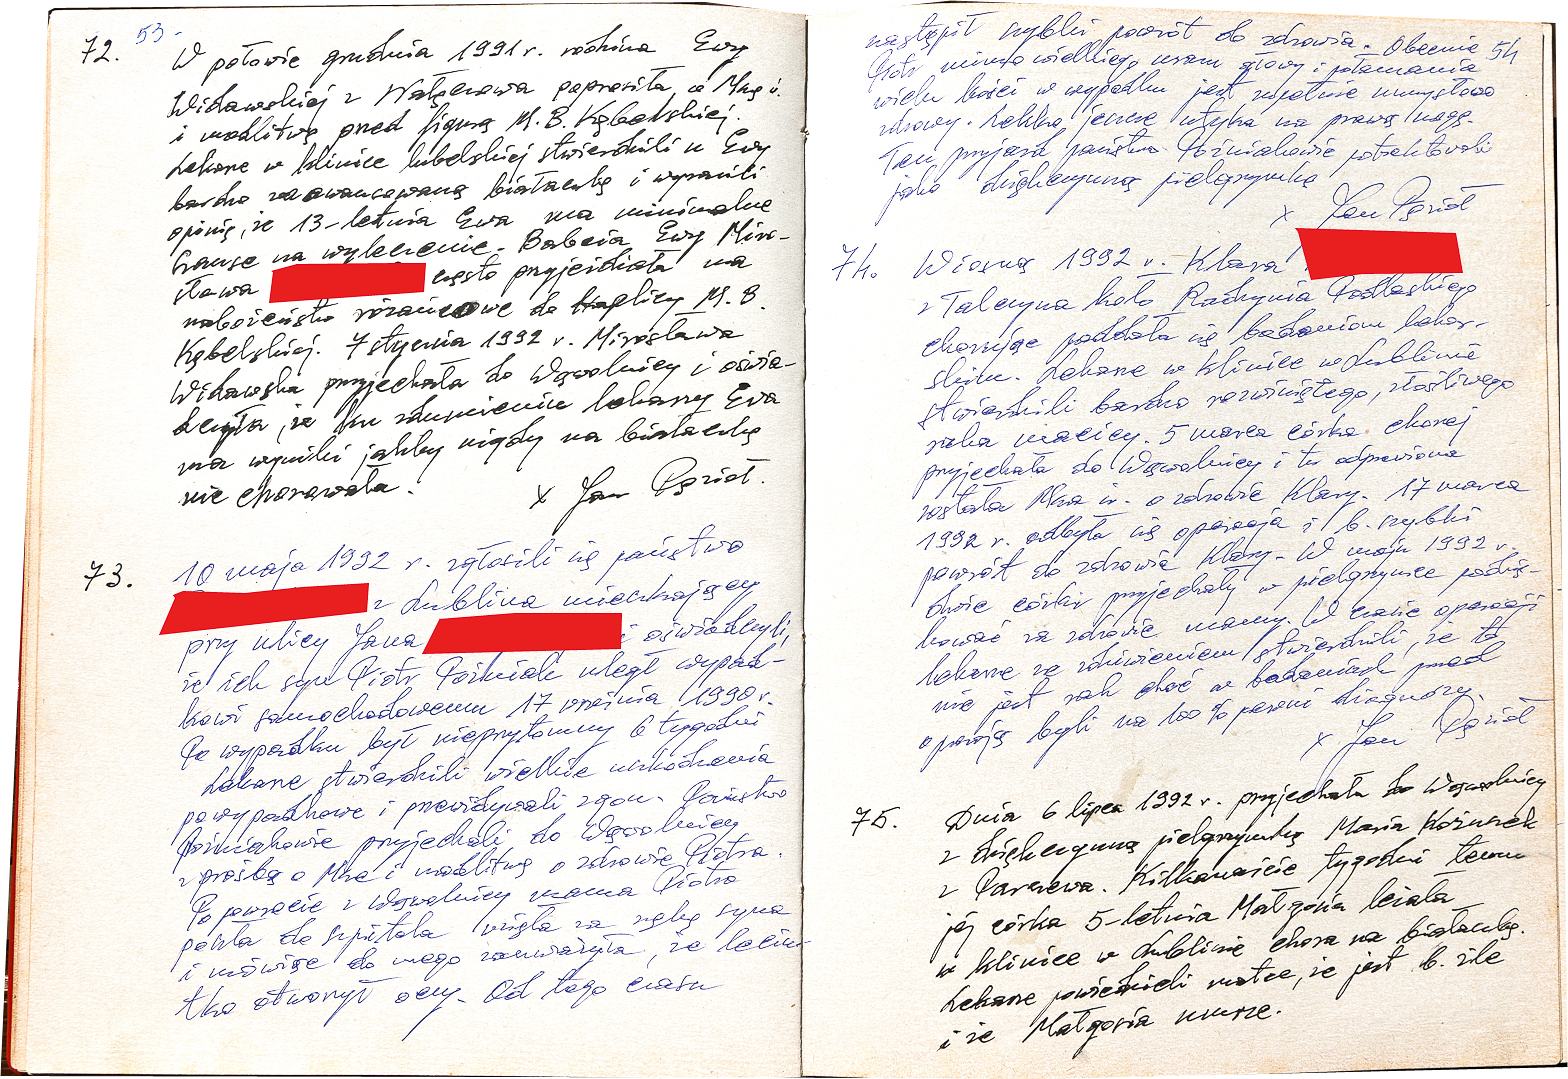 53-
72. W połowie grudnia 1991 r. rodzina Ewy
Widawskiej z Wałgenowa poprosiła o Mszę ś.
i modlitwę przed figurą M.B. Kębelskiej.
Lekarze w klinice lubelskiej stwierdzili u Ewy
bardzo zaawansowaną białaczkę i wyrazili
opinię, że 13-letnia Ewa ma minimalne
szanse na wyleczenie. Babcia Ewy Miro-
sława często przyjeżdżała na
nabożeństo różańcowe do kaplicy M.B.
Kębelskiej. 7 stycznia 1992 r. Mirosława
Widawska przyjechała do Wąwolnicy i oświa-
dczyła, że ku zdumieniu lekarzy Ewa
ma wyniki jakby nigdy na białaczkę
nie chorowała.
x Jan Pęzioł.
73. 10 maja 1992 r. zgłosili się państwo
z Lublina mieszkający
przy ulicy Jana i oświadczyli,
że ich syn Piotr Poźniak uległ wypad-
kowi samochodowemu 17 września 1990 r.
Po wypadku był nieprzytomny 6 tygodni
Lekarze stwierdzili wielkie uszkodzenia
powypadkowe i przewidywali zgon. Państwo
Poźniakowie przyjechali do Wąwolnicy
z prośbą o Mszę i modlitwę o zdrowie Piotra.
Po powrocie z Wąwolnicy mama Piotra
poszła do szpitala wzięła za rękę syna
i mówiąc do niego zauważyła, że leciu-
tko otworzył oczy. Od tego czasu
54
nastąpił szybki powrót do zdrowia. Obecnie
Piotr mimo wielkiego urazu głowy i połamania
wielu kości w wypadku jest zupełnie umysłowo
zdrowy. Lekko jeszcze utyka na prawą nogę.
Ten przyjazd państwo Poźniakowie potraktowali
jako dziękczynną pielgrzymkę
x Jan Pęzioł
74. Wiosną 1992 r. Klara
z Talczyna koło Radzynia Podlaskiego
chorując poddała się badaniom lekar-
skim. Lekarze w klinice w Lublinie
stwierdzili bardzo rozwiniętego, złośliwego
raka macicy. 5 marca córka chorej
przyjechała do Wąwolnicy i tu odprawiona
została Msza św. o zdrowie Klary. 17 marca
1992 r. odbyła się operacja i b. szybki
powrót do zdrowia Klary. W maju 1992 r.
dwie córki przyjechały w pielgrzymce podzię-
kować za zdrowie mamy. W czasie operacji
lekarze ze zdziwieniem stwierdzili, że to
nie jest rak choć w badaniach przed
operacją byli na 100% pewni diagnozy.
x Jan Pęzioł
75. Dnia 6 lipca 1992 r. przyjechała do Wąwolnicy
z dziękczynną pielgrzymką Maria Kożuszek
z Parczewa. Kilkanaście tygodni temu
jej córka 5-letnia Małgosia leżała
w klinice w Lublinie chora na białaczkę.
Lekarze powiedzieli matce, że jest b. źle
i że Małgosia umrze.